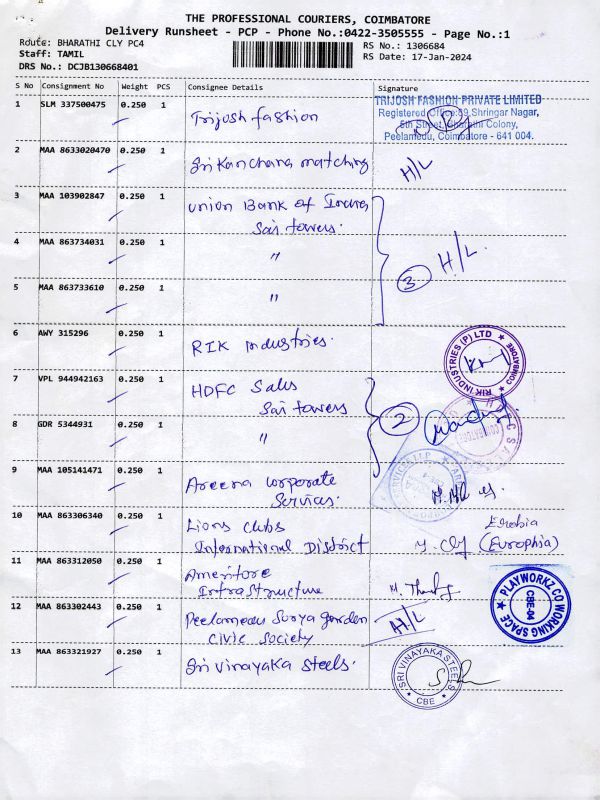 THE PROFESSIONAL COURIERS, COIMBATORE
Delivery Runsheet - PCP - Phone No.:0422-3505555 - Page No.:1
Route: BHARATHI CLY PC4
RS No.: 1306684
Staff: TAMIL
RS Date: 17-Jan-2024
DRS No.: DCJB130668401
S No Consignment No Weight PCS Consignee Details Signature
1 SLM 337500475 0.250 1 Trijosh fashion
TRIJOSH FASHION PRIVATE LIMITED
Registered Office:89 Shringar Nagar,
5th Street, Bharathi Colony,
Peelamedu, Coimbatore - 641 004.
2 MAA 8633020470 0.250 1 Sri Kanchana matching H/L
3 MAA 103902847 0.250 1 Union Bank of India
Sai towers.
4 MAA 863734031 0.250 1 "
3 H/L.
5 MAA 863733610 0.250 1 "
6 AWY 315296 0.250 1 RIK industries.
RIK INDUSTRIES (P) LTD ★ COIMBATORE
7 VPL 944942163 0.250 1 HDFC Sales
Sai towers
2
8 GDR 5344931 0.250 1 "
9 MAA 105141471 0.250 1 Areena corporate
Services.
10 MAA 863306340 0.250 1 Lions clubs
International District
Erobia
(Europhia)
11 MAA 863312050 0.250 1 Ameritore
Infrastructure
12 MAA 863302443 0.250 1 Peelamedu Surya garden
civic society
H/L
PLAYWORKZ CO WORKING SPACE ★
CBE-04
13 MAA 863321927 0.250 1 Sri Vinayaka steels.
SRI VINAYAKA STEELS
CBE